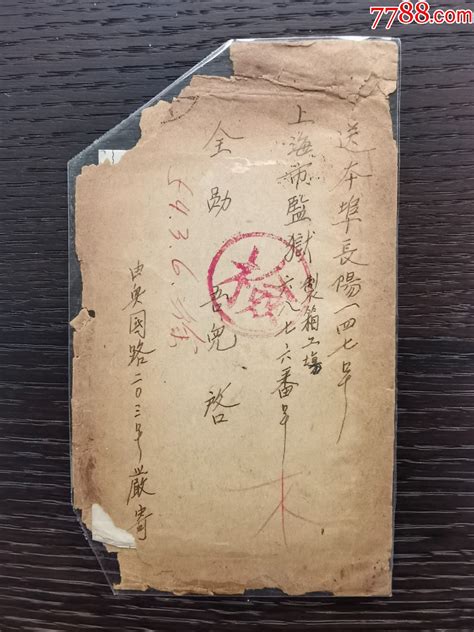 7788.com
送本埠長陽一四七号
上海市監獄製箱工場
六八七六番号
全勋吾兒啓
64.3.6.
由興国路二〇三号嚴寄